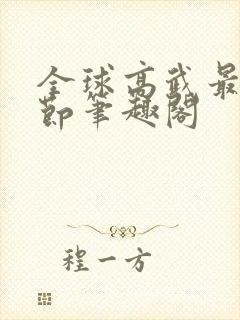 全球高武最
节笔趣阁
程一方